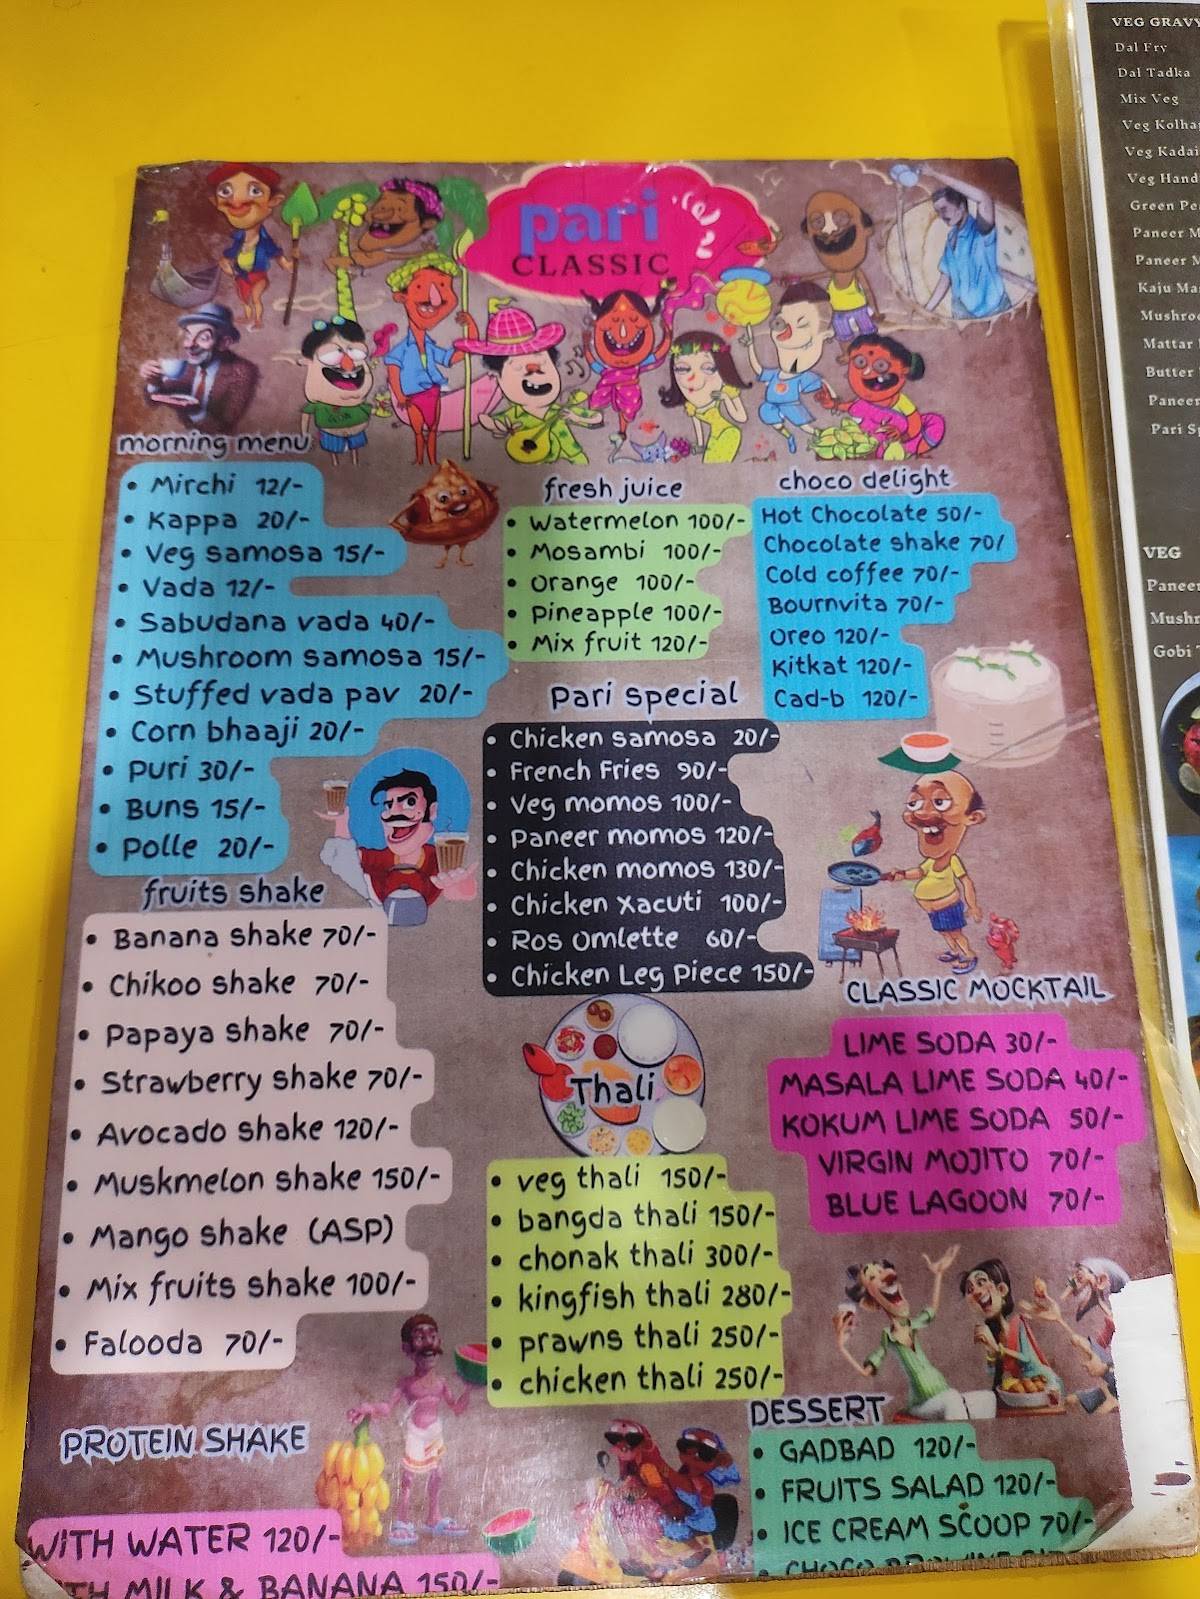 pari
CLASSIC
morning menu
• Mirchi 12/-
• Kappa 20/-
• Veg samosa 15/-
• Vada 12/-
• Sabudana vada 40/-
• Mushroom samosa 15/-
• Stuffed vada pav 20/-
• Corn bhaaji 20/-
• Puri 30/-
• Buns 15/-
• Polle 20/-
fruits shake
• Banana shake 70/-
• Chikoo shake 70/-
• Papaya shake 70/-
• Strawberry shake 70/-
• Avocado shake 120/-
• Muskmelon shake 150/-
• Mango shake (ASP)
• Mix fruits shake 100/-
• Falooda 70/-
PROTEIN SHAKE
WITH WATER 120/-
MILK & BANANA 150/-
fresh juice
• Watermelon 100/-
• Mosambi 100/-
• Orange 100/-
• Pineapple 100/-
• Mix fruit 120/-
Pari Special
• Chicken samosa 20/-
• French Fries 90/-
• Veg momos 100/-
• Paneer momos 120/-
• Chicken momos 130/-
• Chicken Xacuti 100/-
• Ros Omlette 60/-
• Chicken Leg Piece 150/-
Thali
• veg thali 150/-
• bangda thali 150/-
• chonak thali 300/-
• kingfish thali 280/-
• prawns thali 250/-
• chicken thali 250/-
choco delight
Hot Chocolate 50/-
Chocolate shake 70/
Cold coffee 70/-
Bournvita 70/-
Oreo 120/-
Kitkat 120/-
Cad-b 120/-
CLASSIC MOCKTAIL
LIME SODA 30/-
MASALA LIME SODA 40/-
KOKUM LIME SODA 50/-
VIRGIN MOJITO 70/-
BLUE LAGOON 70/-
DESSERT
• GADBAD 120/-
• FRUITS SALAD 120/-
• ICE CREAM SCOOP 70/-
VEG GRAVY
Dal Fry
Dal Tadka
Mix Veg
Veg Kolha
Veg Kadai
Veg Hand
Green Pe
Paneer M
Paneer M
Kaju Ma
Mushroo
Mattar
Butter
Paneer
Pari Sp
VEG
Paneer
Mushr
Gobi